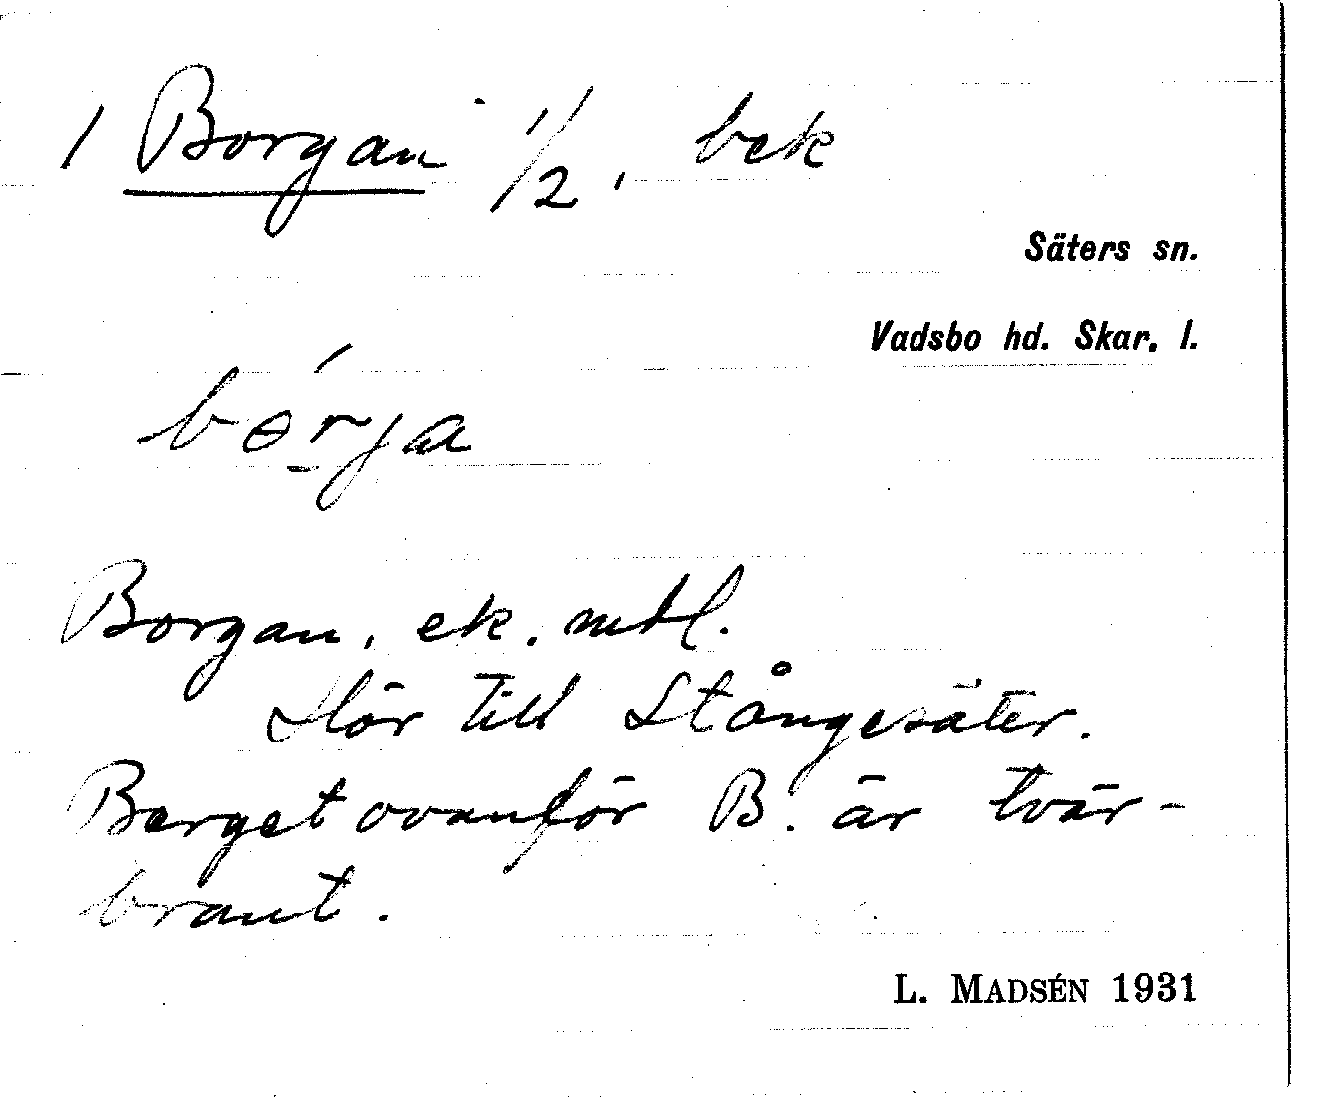 1 Borgan 1/2, bek
Säters sn.
Vadsbo hd. Skar. l.
bɵ́rja
Borgan, ek. mtl.
Hör till Stångesäter.
Berget ovanför B. är tvär-
brant.
L. MADSÉN 1931